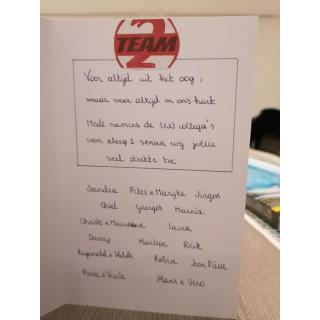 2
TEAM
Voor altijd uit het oog,
maar voor altijd in ons hart.
Mede namens de (ex) collega's
van ploeg 2 wensen wij jullie
veel sterkte toe.
Sandra Peter & Marijke Jürgen
Chiel Georges Marnix
Christo & Laura
Danny Marleen Dirk
Reginald & Hilde Robin Jean Pierre
& Veerle Hans & Vero